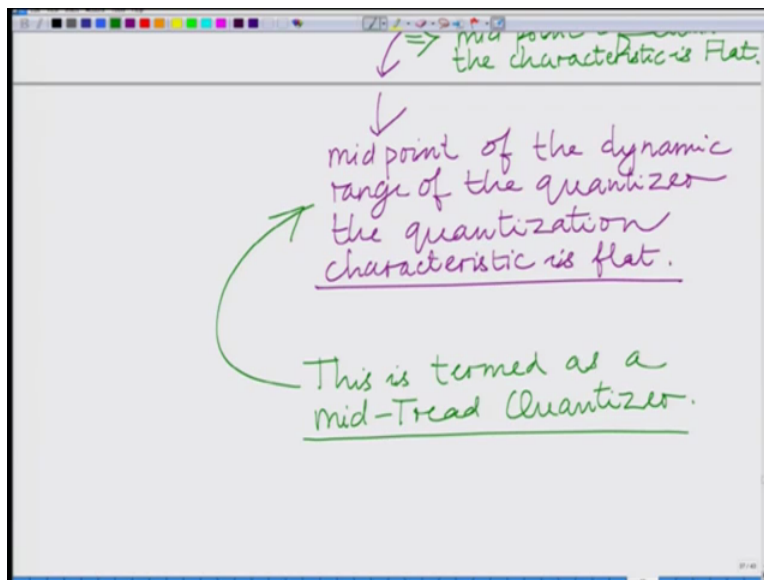 ⇒ mid point
the characteristic is Flat.
midpoint of the dynamic
range of the quantizer
the quantization
characteristic is flat.
This is termed as a
mid-Tread Quantizer.